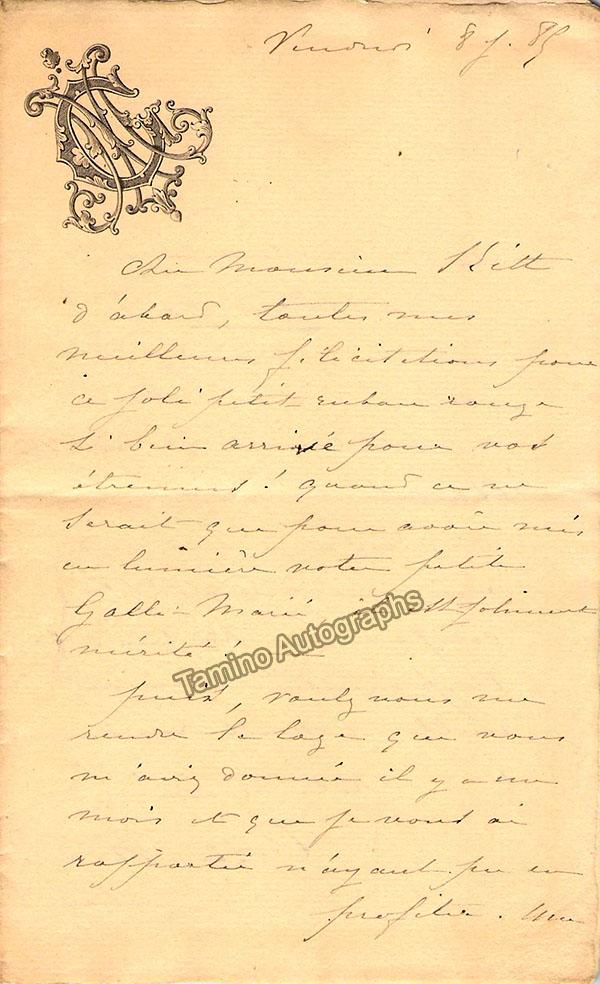 Vendredi 8 j. 85
Cher Monsieur Ritt
d'abord, toutes mes
meilleures félicitations pour
ce joli petit ruban rouge
si bien arrivé pour vos
étrennes! quand ce ne
serait que pour avoir mis
en lumière votre petite
Galli-Marié il est joliment
mérité!
Tamino Autographs
puis, voulez vous me
rendre la loge que vous
m'aviez donnée il y a un
mois et que je vous ai
rapportée n'ayant pu en
profiter. Une